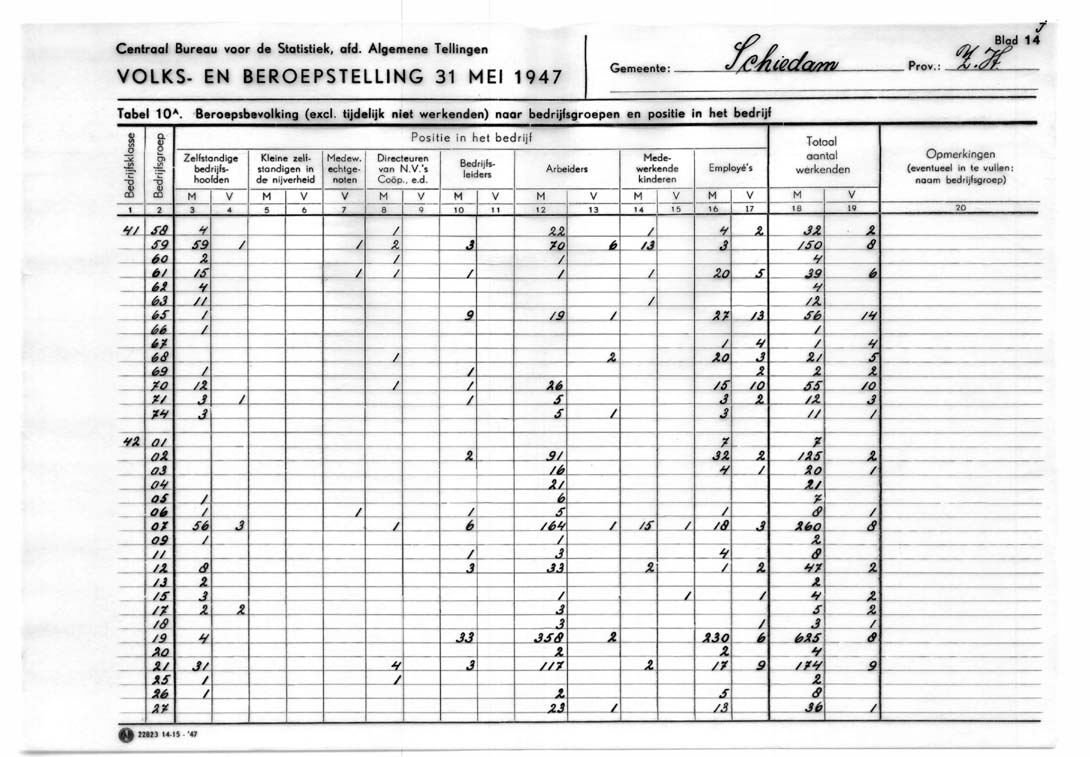 Blad 14
Centraal Bureau voor de Statistiek, afd. Algemene Tellingen
VOLKS- EN BEROEPSTELLING 31 MEI 1947
Gemeente: Schiedam Prov.: Z.H.
Tabel 10A. Beroepsbevolking (excl. tijdelijk niet werkenden) naar bedrijfsgroepen en positie in het bedrijf
Bedrijfsklasse Bedrijfsgroep Positie in het bedrijf Totaal aantal werkenden Opmerkingen (eventueel in te vullen: naam bedrijfsgroep)
Zelfstandige bedrijfs-hoofden Kleine zelf-standigen in de nijverheid Medew. echtge-noten Directeuren van N.V.'s Coöp., e.d. Bedrijfs-leiders Arbeiders Mede-werkende kinderen Employé's
M V M V V M V M V M V M V M V M V
1 2 3 4 5 6 7 8 9 10 11 12 13 14 15 16 17 18 19 20
41 58 4 1 22 1 4 2 32 2
59 59 1 1 2 3 70 6 13 3 150 8
60 2 1 1 4
61 15 1 1 1 1 1 20 5 39 6
62 4 4
63 11 1 12
65 1 9 19 1 27 13 56 14
66 1 1
67 1 4 1 4
68 1 2 20 3 21 5
69 1 1 2 2 2
70 12 1 1 26 15 10 55 10
71 3 1 1 5 3 2 12 3
74 3 5 1 3 11 1
42 01 7 7
02 2 91 32 2 125 2
03 16 4 1 20 1
04 21 21
05 1 6 7
06 1 1 1 5 1 8 1
07 56 3 1 6 164 1 15 1 18 3 260 8
09 1 1 2
11 1 3 4 8
12 8 3 33 2 1 2 47 2
13 2 2
15 3 1 1 1 4 2
17 2 2 3 5 2
18 3 1 3 1
19 4 33 358 2 230 6 625 8
20 2 2 4
21 31 4 3 117 2 17 9 174 9
25 1 1 2
26 1 2 5 8
27 23 1 13 36 1
22823 14-15 - '47